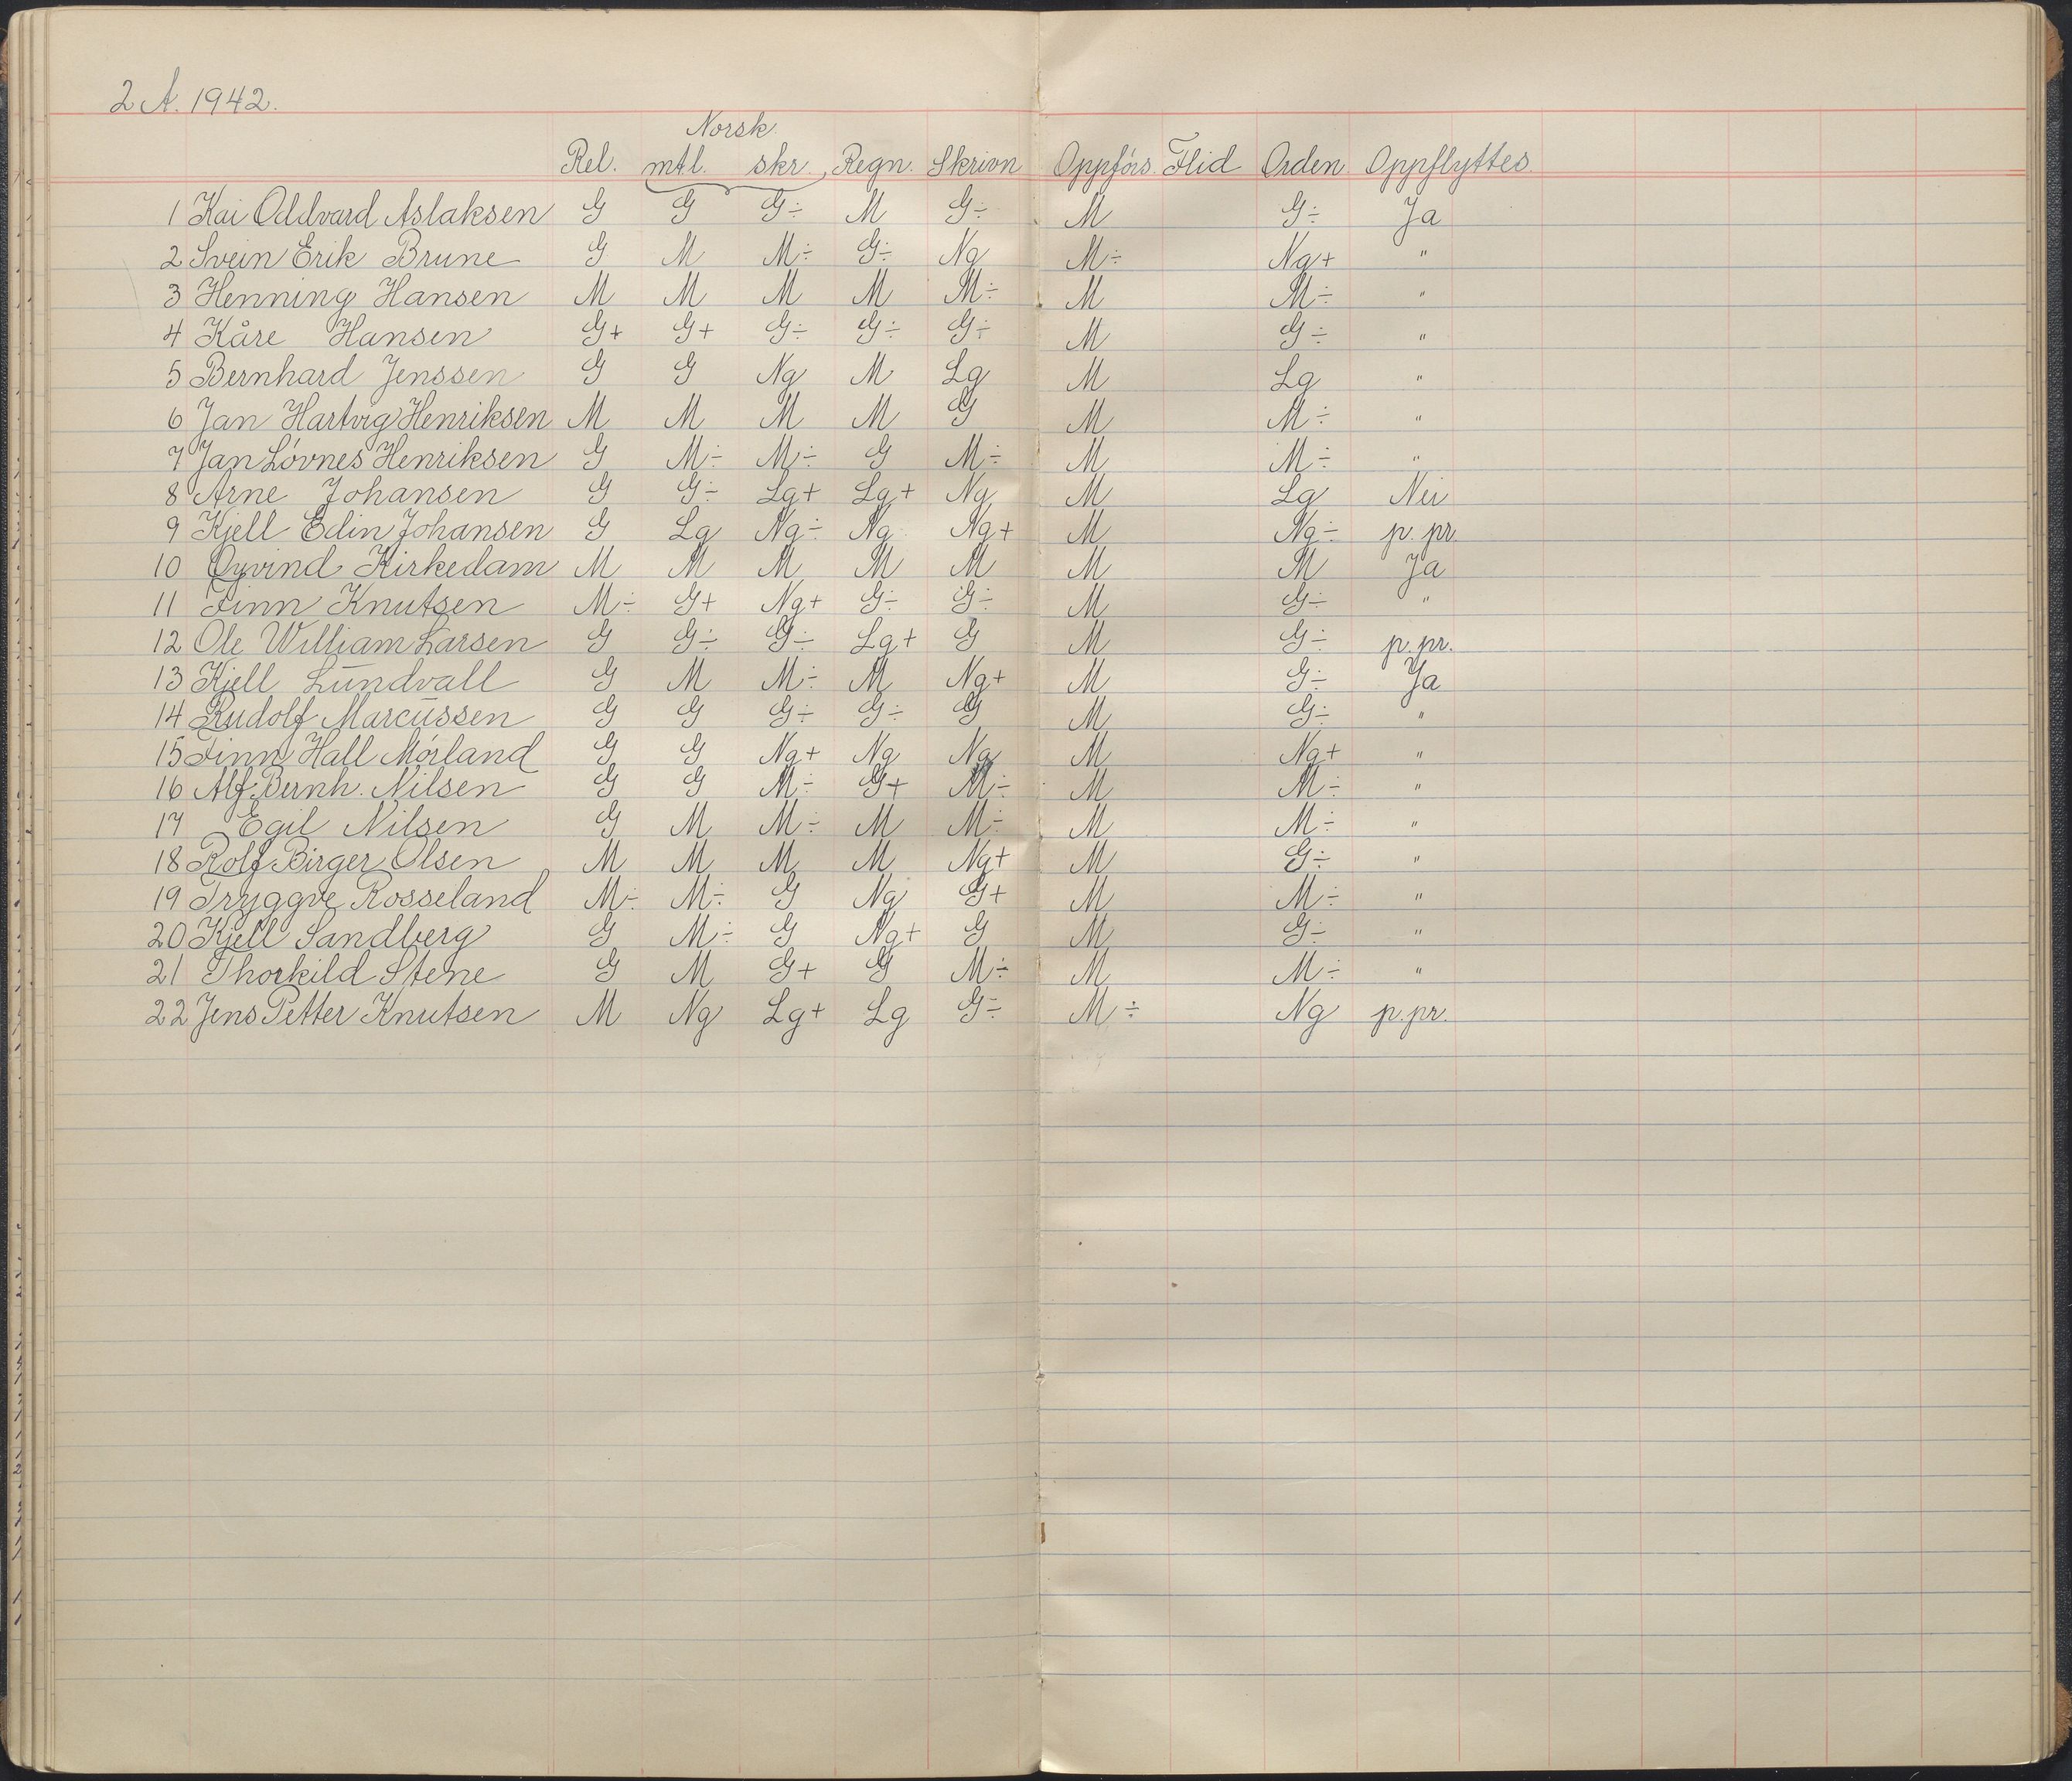 2 A. 1942.
Norsk
Rel. mtl. skr. Regn. Skrivn Oppførs. Flid Orden Oppflyttes.
1 Kai Oddvard Aslaksen G G G÷ M G÷ M G÷ Ja
2 Svein Erik Brune G M M÷ G÷ Ng M÷ Ng+ "
3 Henning Hansen M M M M M÷ M M÷ "
4 Kåre Hansen G+ G+ G÷ G÷ G÷ M G÷ "
5 Bernhard Jenssen G G Ng M Lg M Lg "
6 Jan Hartvig Henriksen M M M M G M M÷ "
7 Jan Løvnes Henriksen G M÷ M÷ G M÷ M M÷ "
8 Arne Johansen G G÷ Lg+ Lg+ Ng M Lg Nei
9 Kjell Edin Johansen G Lg Ng÷ Ng Ng+ M Ng÷ p. pr.
10 Øyvind Kirkedam M M M M M M M Ja
11 Finn Knutsen M÷ G+ Ng+ G÷ G÷ M G÷ "
12 Ole William Larsen G G÷ G÷ Lg+ G M G÷ p. pr.
13 Kjell Lundvall G M M÷ M Ng+ M G÷ Ja
14 Rudolf Marcussen G G G÷ G÷ G M G÷ "
15 Finn Hall Mørland G G Ng+ Ng Ng M Ng+ "
16 Alf Bernh. Nilsen G G M÷ G+ M÷ M M÷ "
17 Egil Nilsen G M M÷ M M÷ M M÷ "
18 Rolf Birger Olsen M M M M Ng+ M G÷ "
19 Tryggve Rosseland M÷ M÷ G Ng G+ M M÷ "
20 Kjell Sandberg G M÷ G Ng+ G M G÷ "
21 Thorkild Stene G M G+ G M÷ M M÷ "
22 Jens Petter Knutsen M Ng Lg+ Lg G÷ M÷ Ng p. pr.